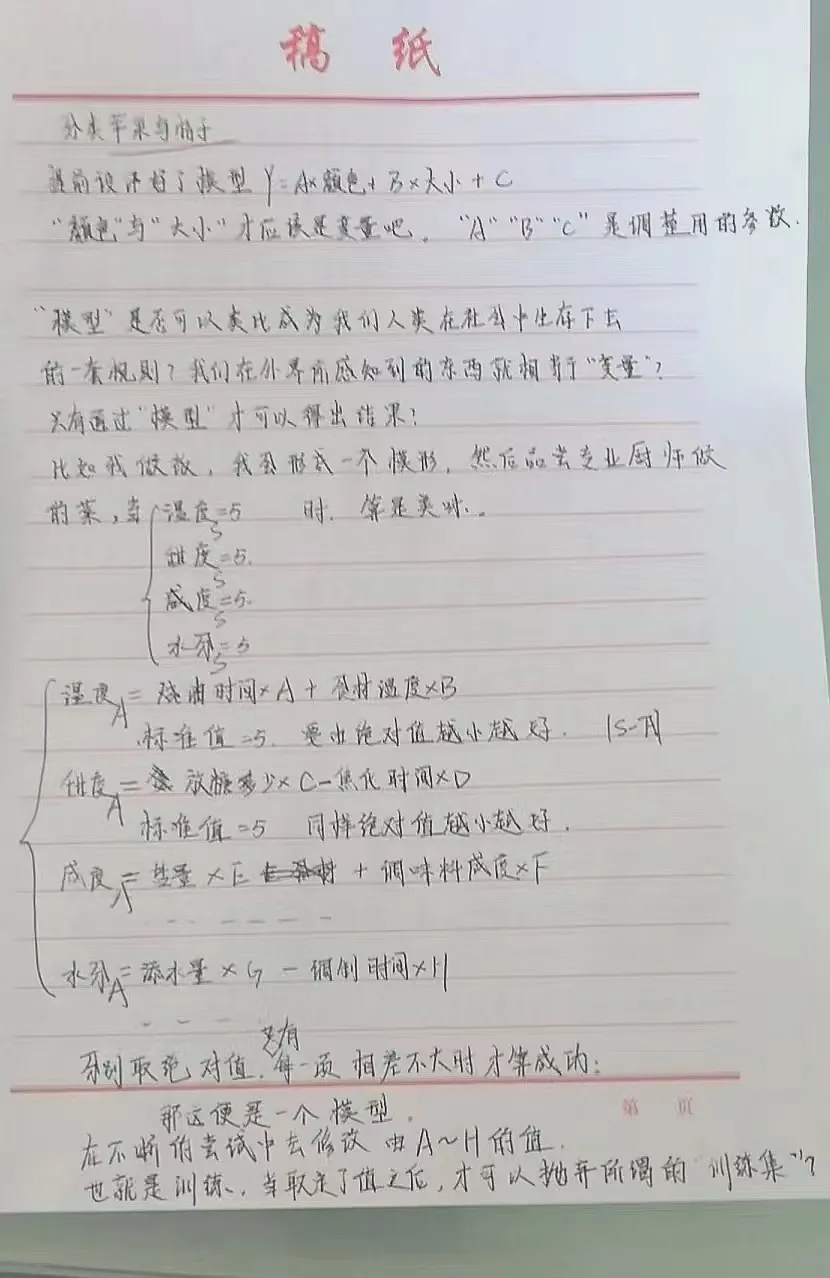 稿 纸
分类苹果与橘子
提前设计好了模型 Y=A×颜色+B×大小+C
“颜色”与“大小”才应该是变量吧。“A”“B”“C”是调整用的参数.
“模型”是否可以类比成为我们人类在社会中生存下去
的一套规则？我们在外界所感知到的东西就相当于“变量”？
只有通过“模型”才可以得出结果？
比如我做饭，我会形成一个模形，然后品尝专业厨师做
的菜，当 温度S=5 时. 算是美味.。
甜度S=5.
咸度S=5.
水分S=5
温度A=烧油时间×A+食材温度×B
标准值=5. 要由绝对值越小越好. |S-A|
甜度A=放糖多少×C-焦化时间×D
标准值=5 同样绝对值越小越好.
咸度A=盐量×E+调味料咸度×F
水分A=添水量×G-调制时间×H
分别取绝对值.只有每一项相差不大时才算成功:
第 页
那这便是一个模型.
在不断的尝试中去修改由A~H的值.
也就是训练、当取定了值之后，才可以抛弃所谓的“训练集”？